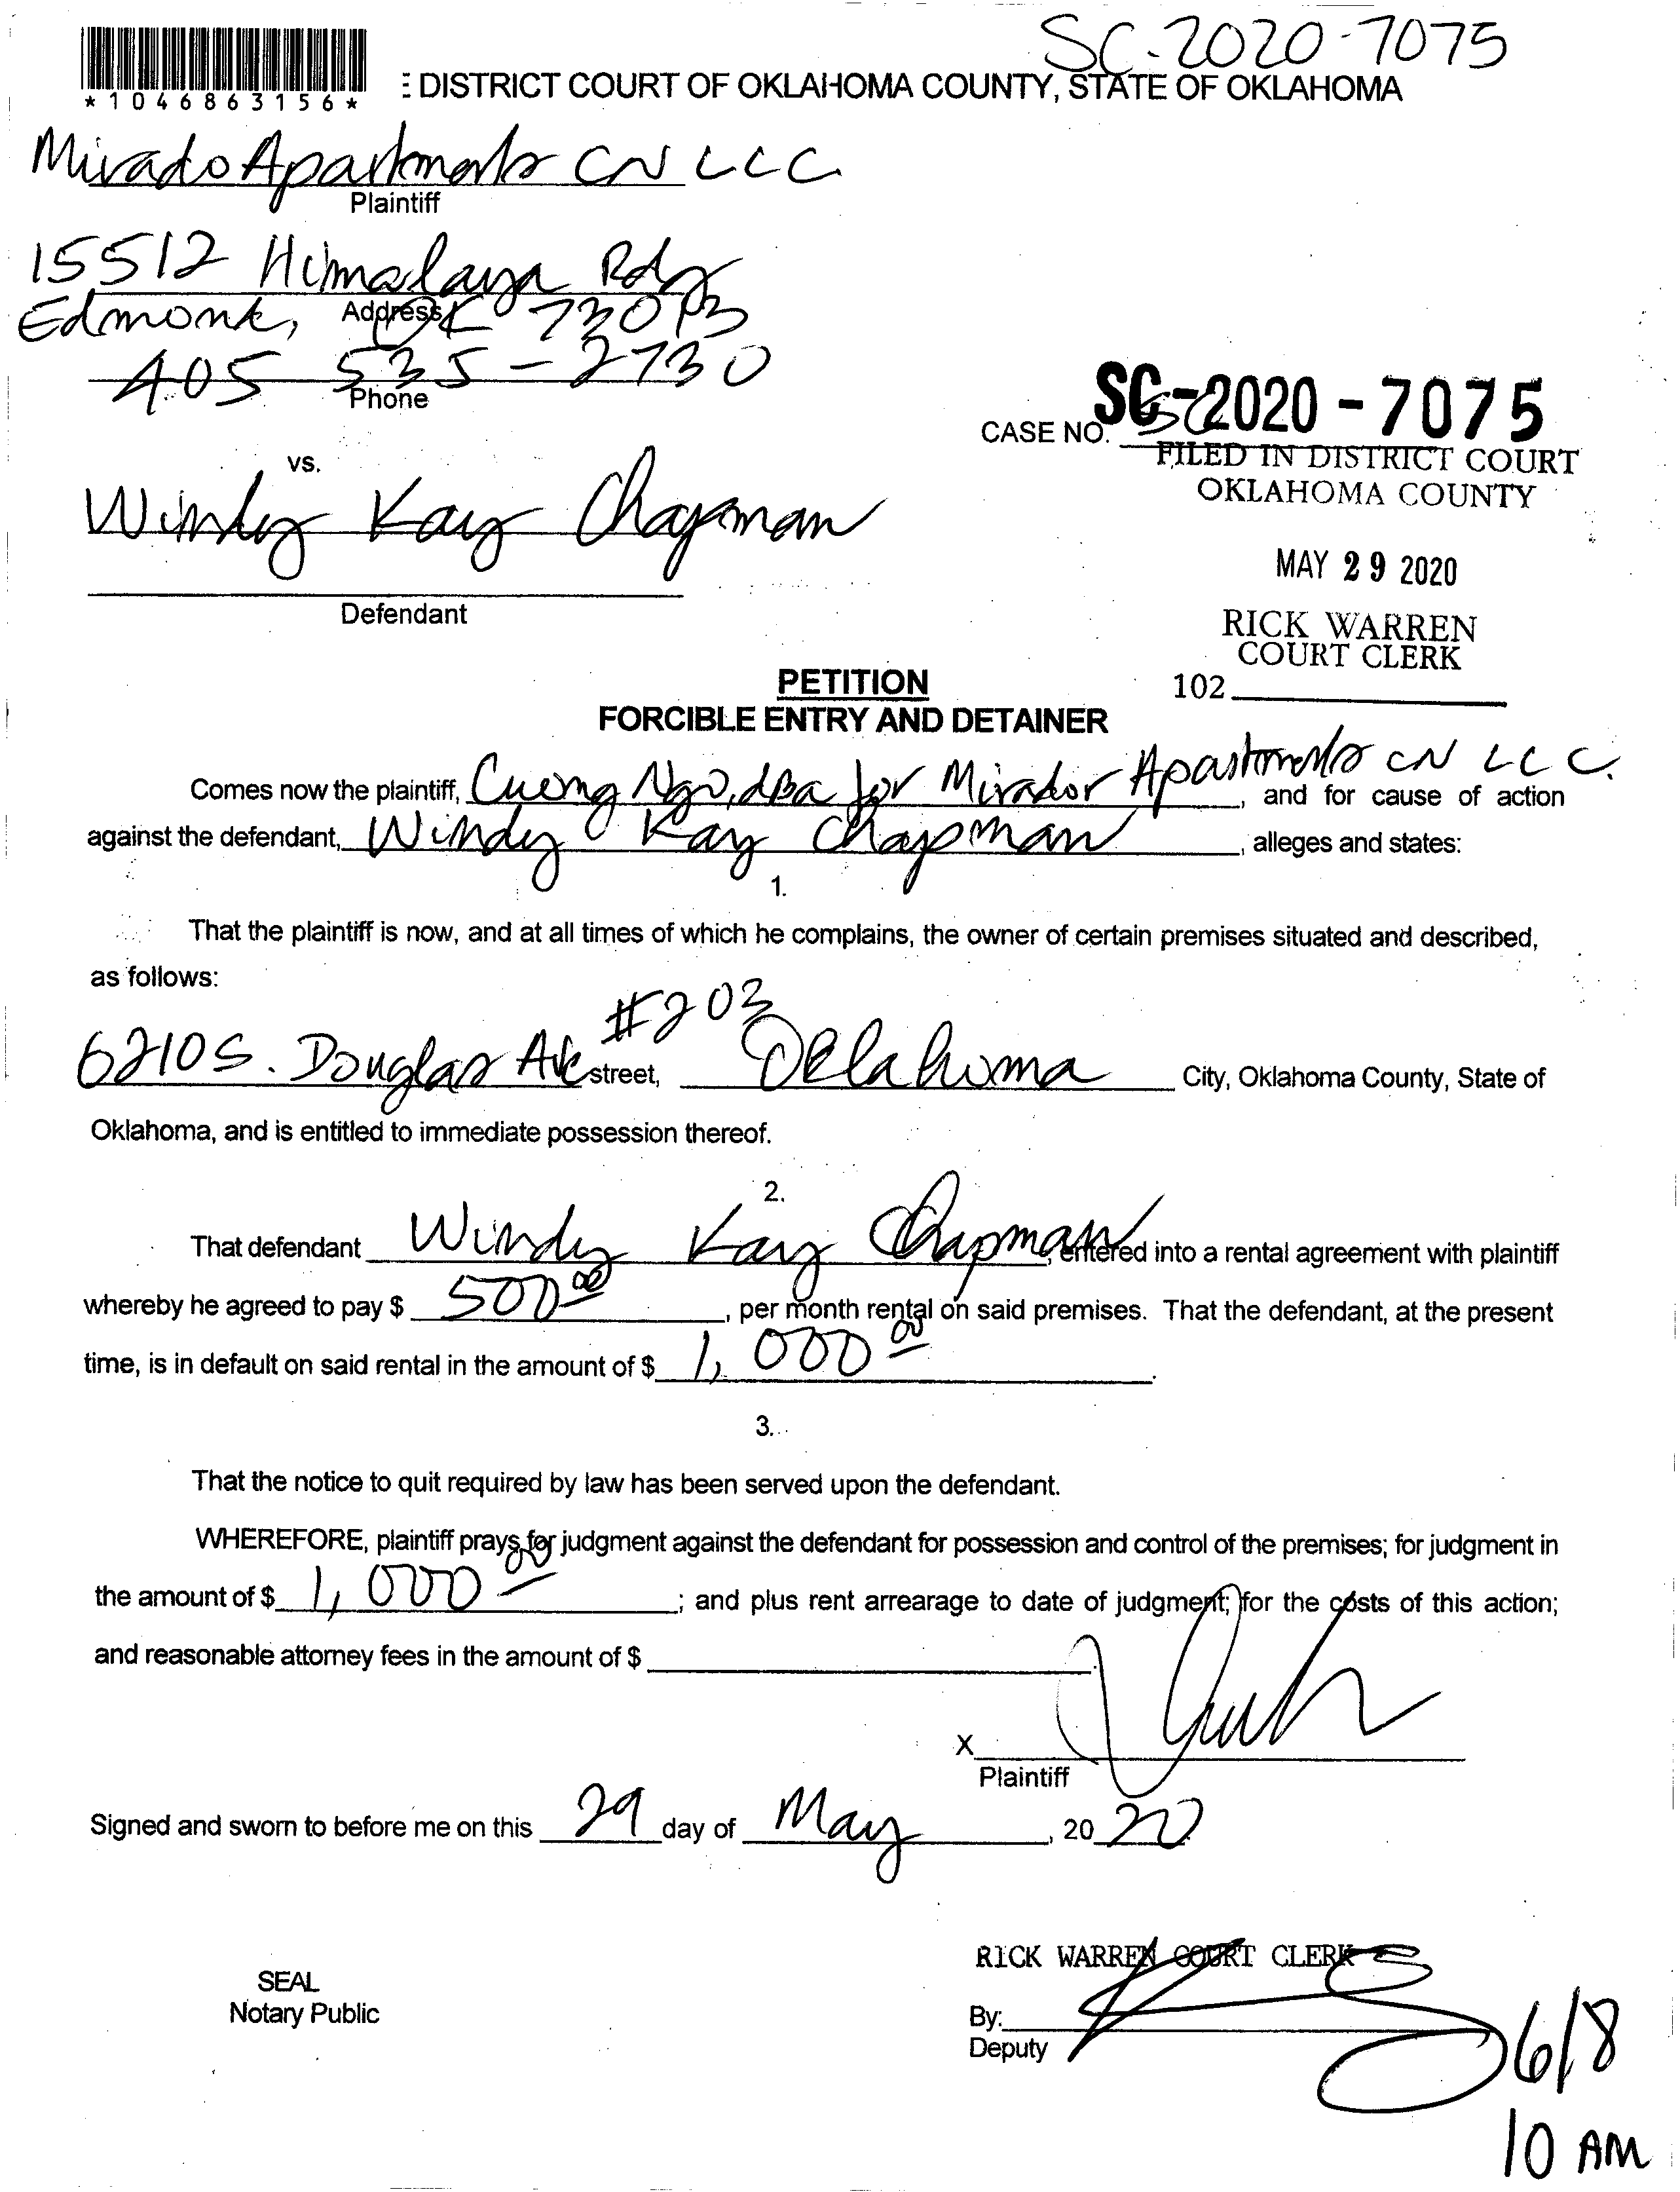 SC-2020-7075
*1046863156*
: DISTRICT COURT OF OKLAHOMA COUNTY, STATE OF OKLAHOMA
Mirado Apartments CN LLC
Plaintiff
15512 Himalaya Rdg
Edmond, OK 73013
Address
405 535-2730
Phone
CASE NO. SC-2020-7075
vs.
FILED IN DISTRICT COURT
OKLAHOMA COUNTY
Windy Kay Chapman
MAY 29 2020
Defendant
RICK WARREN
COURT CLERK
102
PETITION
FORCIBLE ENTRY AND DETAINER
Comes now the plaintiff, Cuong Ngo, dba for Mirador Apartments CN LLC., and for cause of action
against the defendant, Windy Kay Chapman, alleges and states:
1.
That the plaintiff is now, and at all times of which he complains, the owner of certain premises situated and described,
as follows:
6210 S. Douglas Ave #203 street, Oklahoma City, Oklahoma County, State of
Oklahoma, and is entitled to immediate possession thereof.
2.
That defendant Windy Kay Chapman, entered into a rental agreement with plaintiff
whereby he agreed to pay $ 500.00, per month rental on said premises. That the defendant, at the present
time, is in default on said rental in the amount of $ 1,000.00.
3.
That the notice to quit required by law has been served upon the defendant.
WHEREFORE, plaintiff prays for judgment against the defendant for possession and control of the premises; for judgment in
the amount of $ 1,000.00; and plus rent arrearage to date of judgment; for the costs of this action;
and reasonable attorney fees in the amount of $
X
Plaintiff
Signed and sworn to before me on this 29 day of May, 2020
RICK WARREN COURT CLERK
SEAL
Notary Public
By:
Deputy
6/8
10 AM